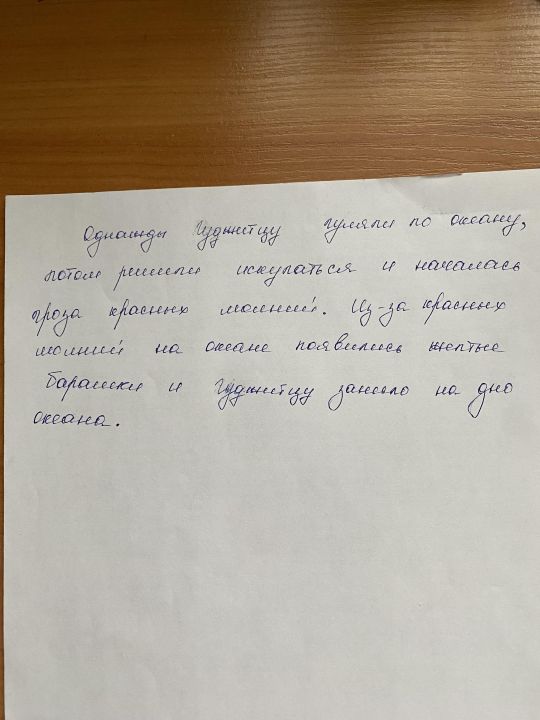 Однажды гуляли по океану,
потом решили искупаться и началась
гроза красных молний. Из-за красных
молний на океане появились желтые
барашки и занесло на дно
океана.